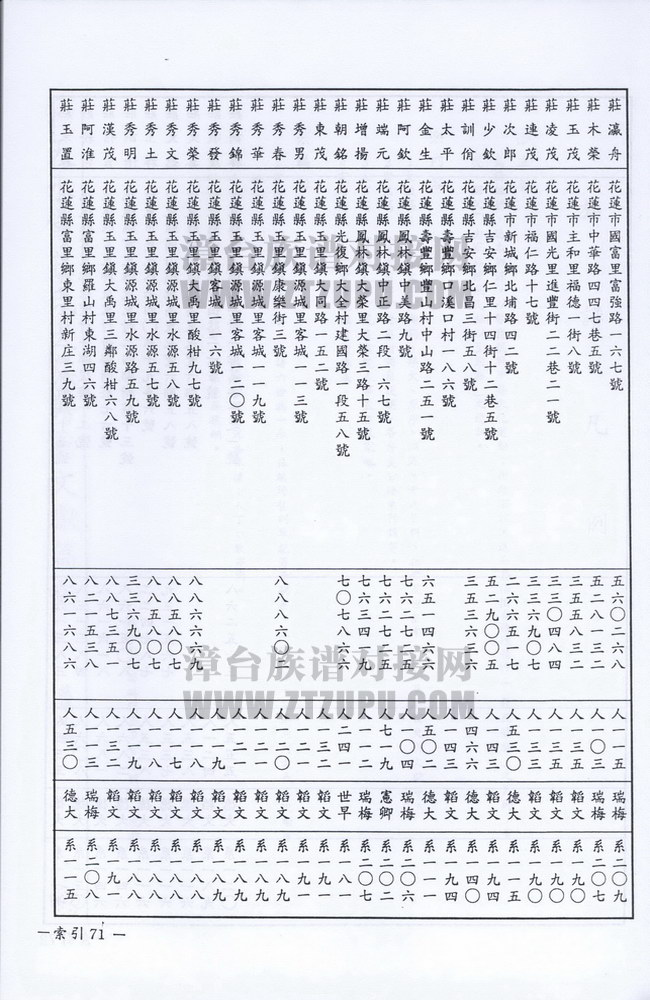 莊瀛舟 花蓮市國富里富強路一六七號 五六〇二六八 人一一五 瑞梅 系二〇九
莊木榮 花蓮市中華路四四七巷五號 五二八一三二 人一〇三 瑞梅 系二〇七
莊玉茂 花蓮市主和里福德一街八號 三五五八三二 人一三三 韜文 系一九一
莊凌茂 花蓮市國光里進豐街二二巷二一號 三三〇四八四 人一三三 韜文 系一九一
莊連茂 花蓮市福仁路十七號 三三六九〇八 人一三三 韜文 系一九一
莊次郎 花蓮市新城鄉北埔路四二號 二六六五一七 人五三〇 德大 系一一五
莊少欽 花蓮縣吉安鄉仁里十四街十二巷五號 五二九〇〇五 人一四三 韜文 系一九四
莊訓佾 花蓮縣吉安鄉北昌三街五八號 三五三六〇六 人四六六 德大 系一四〇
莊太平 花蓮縣壽豐鄉口溪口村一八六號 人一四三 韜文 系一九四
莊金生 花蓮縣壽豐鄉豐山村中山路二五一號 六五一四六六 人五〇二 德大 系一一一
莊阿欽 花蓮縣鳳林鎮中美路九號 七六二七七五 人一〇四 瑞梅 系二〇六
莊端元 花蓮縣鳳林鎮中正路二段一六七號 七六二七六五 人七一九 憲卿 系二〇二
莊增揚 花蓮縣鳳林鎮大榮里大榮三路十五號 七六三四九九 人一一二 瑞梅 系二〇七
莊朝銘 花蓮縣光復鄉大全村建國路一段五八號 七〇七八六六 人二四一 世早 系一八一
莊東茂 花蓮縣玉里鎮大同路一五二號 人一三二 韜文 系一九一
莊秀男 花蓮縣玉里鎮源城里客城一一三號 人一二一 韜文 系一九一
莊秀春 花蓮縣玉里鎮康樂街三號 八八八六〇二 人一二〇 韜文 系一八九
莊秀華 花蓮縣玉里鎮源城里客城一一九號 人一二一 韜文 系一八九
莊秀錦 花蓮縣玉里鎮源城里客城一二〇號 人一二一 韜文 系一八九
莊秀發 花蓮縣玉里鎮客城一一六號 人一一九 韜文 系一八八
莊秀榮 花蓮縣玉里鎮大禹里酸柑九七號 八八六六七九 人一一八 韜文 系一八八
莊秀文 花蓮縣玉里鎮源城里水源五八號 八八五八〇七 人一一七 韜文 系一八八
莊秀土 花蓮縣玉里鎮源城里水源五七號 八八五八〇七 人一一八 韜文 系一八八
莊秀明 花蓮縣玉里鎮源城里水源路五九號 三三六九〇七 人一一九 韜文 系一八八
莊漢茂 花蓮縣玉里鎮大禹里三鄰酸柑六八號 八八七三五一 人一三二 韜文 系一九一
莊阿淮 花蓮縣富里鄉羅山村東湖四六號 八二一五三八 人一一三 瑞梅 系二〇八
莊玉置 花蓮縣富里鄉東里村新庄三九號 八六一六八六 人五三〇 德大 系一一五
漳台族谱对接网
WWW.ZTZUPU.COM
漳台族谱对接网
WWW.ZTZUPU.COM
— 索引 71 —